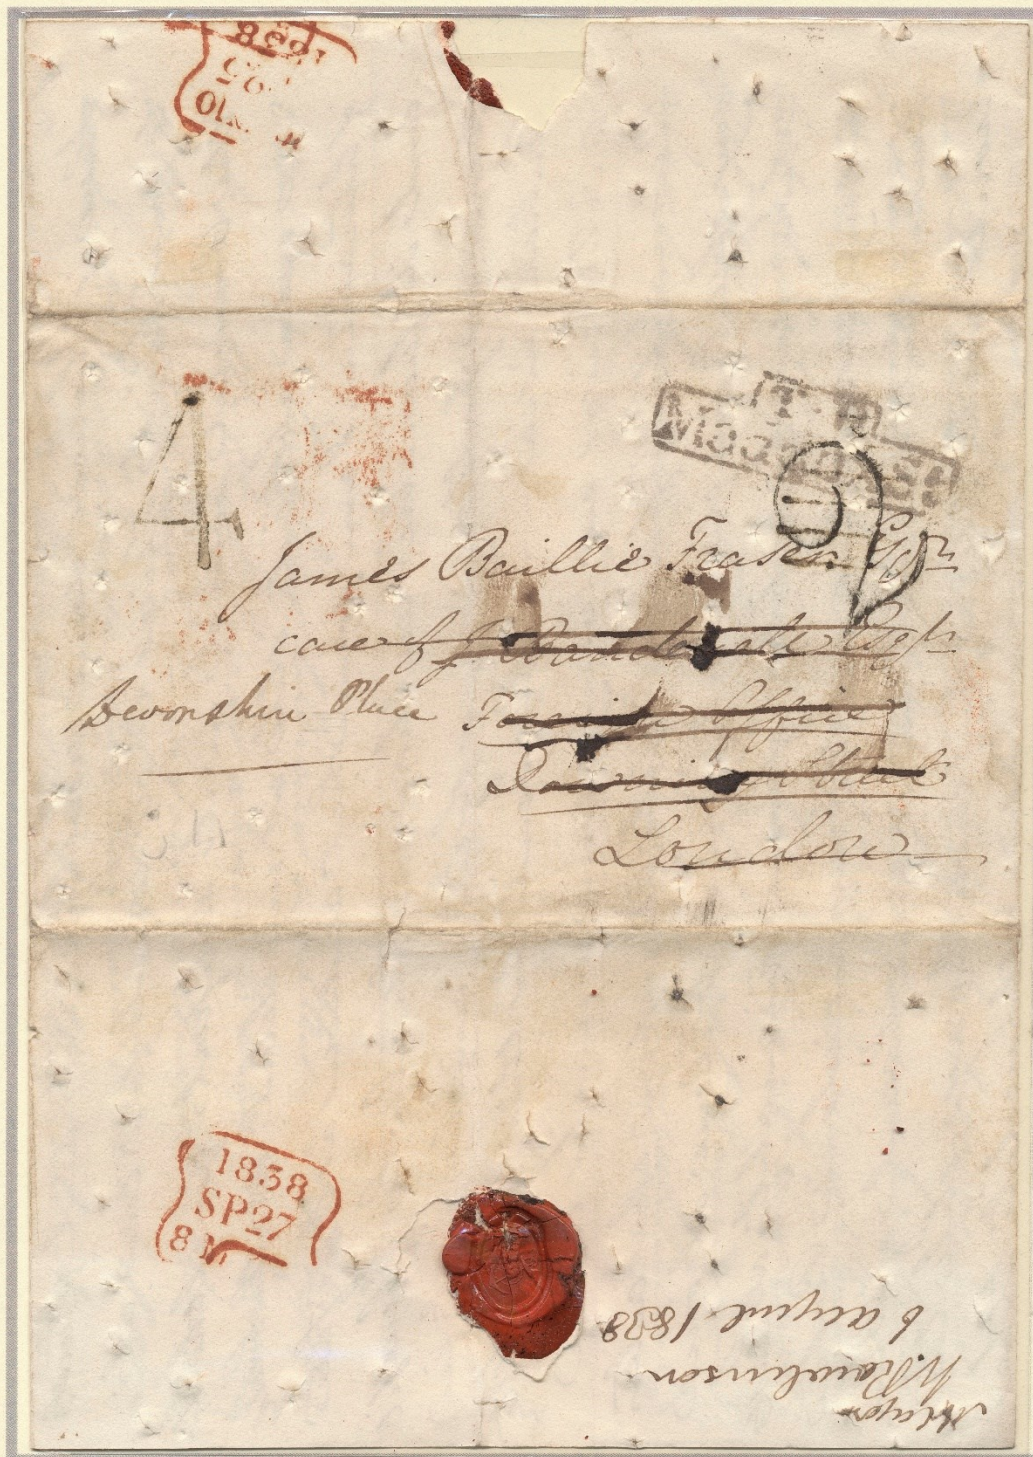 1838
10
4
James Baillie Fraser Esqre
care of J Esqre
Devonshire Place Foreign Office
Downing Street
London
1838
SP27
8 M
Major
H. Rawlinson
6 August 1838